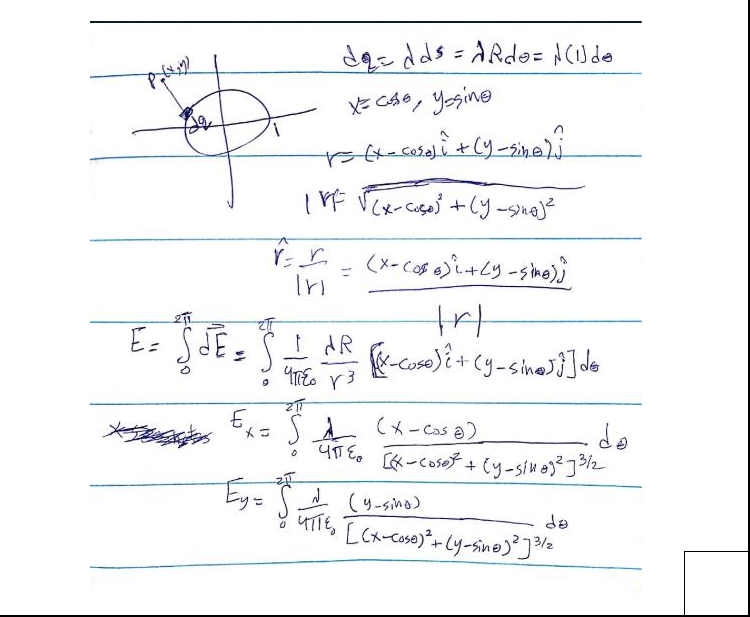 dq = λ ds = λRdθ = λ(1)dθ
P (x,y)
x = cosθ, y = sinθ
dq
1
r = (x-cosθ)î + (y-sinθ)ĵ
|r| = √(x-cosθ)² + (y-sinθ)²
r̂ = r/|r| = (x-cosθ)î + (y-sinθ)ĵ / |r|
E = ∫₀^2π dE⃗ = ∫₀^2π 1/4πε₀ λR/r³ [(x-cosθ)î + (y-sinθ)ĵ] dθ
Ex = ∫₀^2π λ/4πε₀ (x-cosθ)/[(x-cosθ)² + (y-sinθ)²]^3/2 dθ
Ey = ∫₀^2π λ/4πε₀ (y-sinθ)/[(x-cosθ)² + (y-sinθ)²]^3/2 dθ